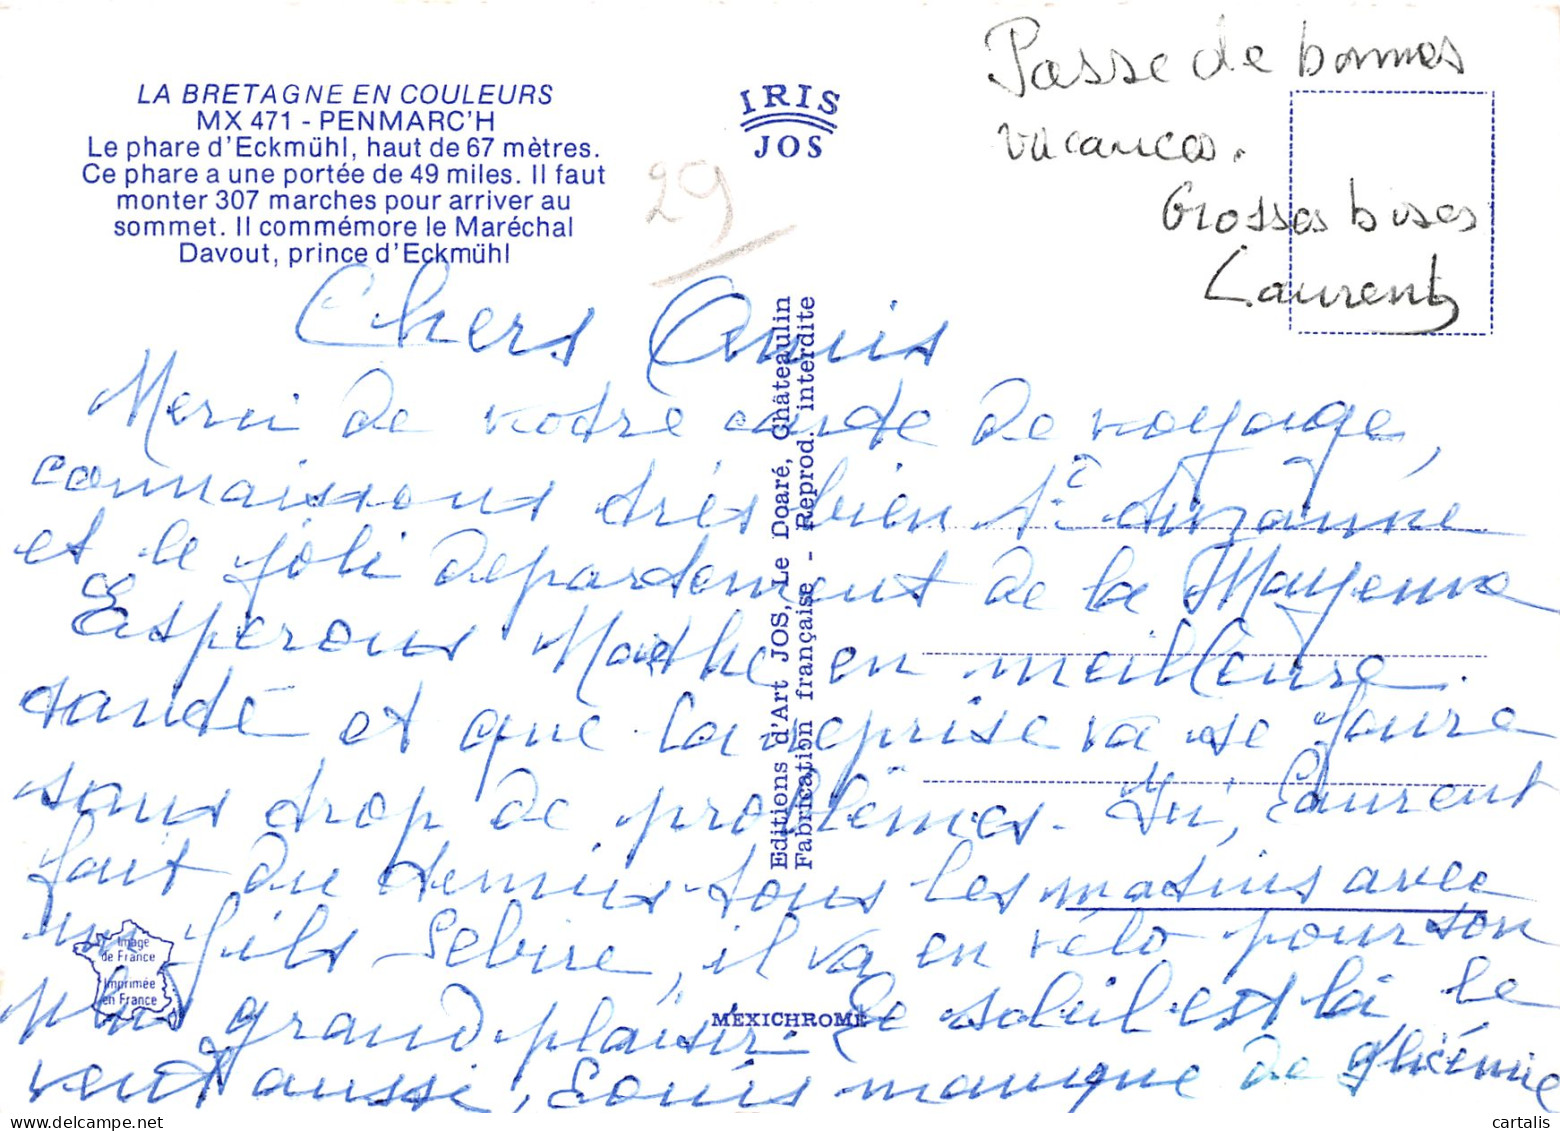 LA BRETAGNE EN COULEURS
MX 471 - PENMARC'H
Le phare d'Eckmühl, haut de 67 mètres.
Ce phare a une portée de 49 miles. Il faut
monter 307 marches pour arriver au
sommet. Il commémore le Maréchal
Davout, prince d'Eckmühl
IRIS
JOS
29
Passe de bonnes
vacances.
Grosses bises
Laurent
Editions d'Art JOS, Le Doaré, Châteaulin
Fabrication française - Reprod. interdite
Chers Amis
Merci de votre carte de voyage,
connaissons très bien Ste Suzanne
et le joli département de la Mayenne
Espérons Marthe en meilleure
santé et que la reprise va se faire
sans trop de problèmes. Ici, Laurent
fait du tennis tous les matins avec
un fils Lebire, il va en vélo pour son
plus grand plaisir. Le soleil est là le
vent aussi, Louis manque de glycémie
Image
de France
Imprimée
en France
MEXICHROME
www.cartalis.com